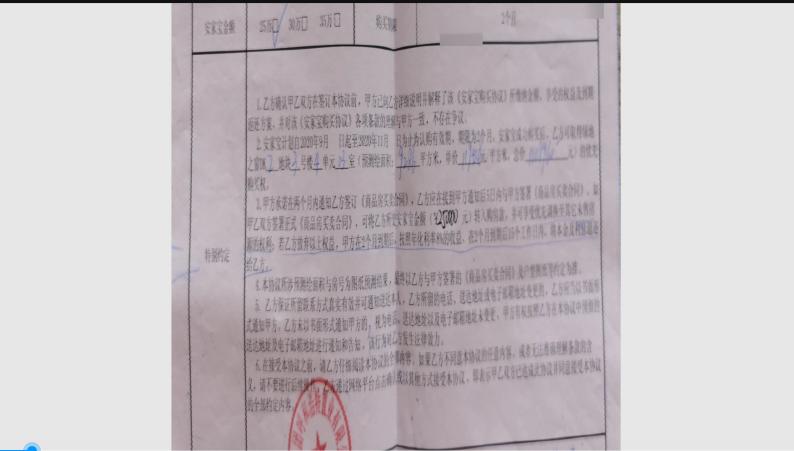 安家宝金额 25万□ 30万□ 35万□ 购买期限 2个月
特别约定
1.乙方确认甲乙双方在签订本协议前，甲方已向乙方详细说明并解释了该《安家宝购买协议》所缴纳金额、享受的权益及到期
返还方案，并对该《安家宝购买协议》各项条款的理解与甲方一致，不存在争议。
2.安家宝计划自2020年9月 日起至2020年11月 日为止为认购有效期，期限为2个月，安家宝成功购买后，乙方可取得领地
号楼 单元 室（预测绘面积 平方米，单价 元/平方米，总价 元）的优先
购买权。
3.甲方承诺在两个月内通知乙方签订《商品房买卖合同》，乙方应在接到甲方通知后5日内与甲方签署《商品房买卖合同》，如
甲乙双方签署正式《商品房买卖合同》，可将乙方所交安家宝金额（ 元）转入购房款，并可享受优先调换至其它未售房
源的权利；若乙方放弃以上权益，甲方在2个月到期后，按照年化利率8%的收益，在2个月到期后15个工作日内，将本金及利息退还
给乙方。
4.本协议所涉预测绘面积与房号为图纸预测结果，最终以乙方与甲方签署的《商品房买卖合同》及户型图纸等约定为准。
5.乙方保证所留联系方式真实有效并可通知送达本人，乙方所留的电话、送达地址或电子邮箱地址变更的，乙方应当以书面形
式通知甲方，乙方未以书面形式通知甲方的，视为电话、送达地址以及电子邮箱地址未变更，甲方有权按照乙方在本协议中预留的
送达地址及电子邮箱地址进行通知和告知，该行为对乙方发生法律效力。
6.在接受本协议之前，请乙方仔细阅读本协议的全部内容，如果乙方不同意本协议的任意内容，或者无法准确理解条款的含
义，请不要进行后续操作，乙方通过网络平台点击确认或以其他方式接受本协议，即表示甲乙双方已达成此协议并同意接受本协议
的全部约定内容。